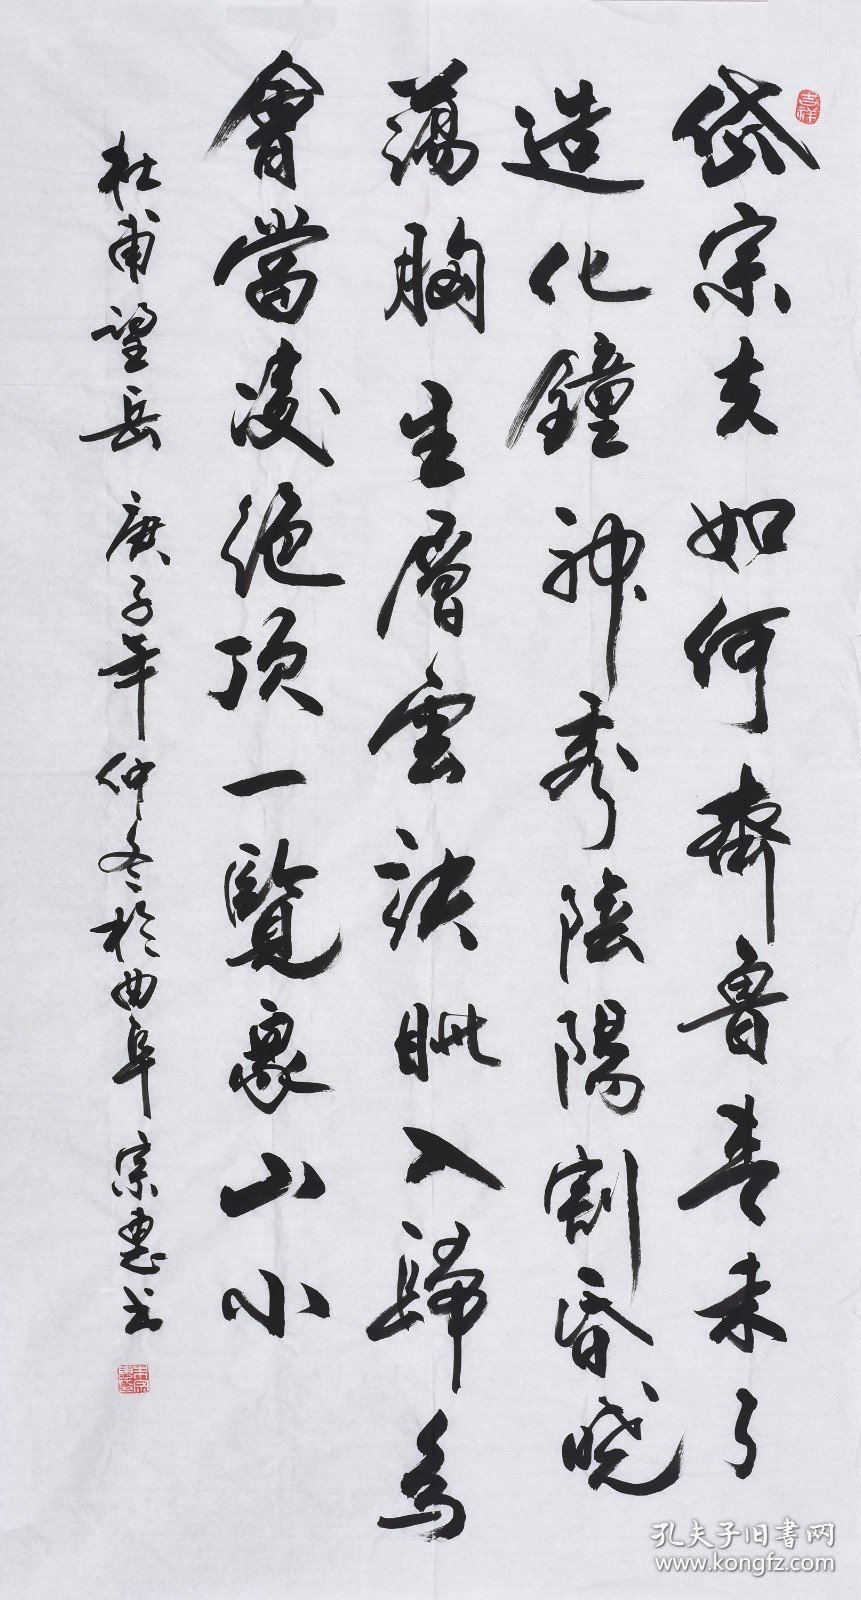 吉祥
岱宗夫如何齊魯青未了
造化鐘神秀陰陽割昏曉
蕩胸生層雲訣眦入歸鳥
會當凌絕頂一覽眾山小
杜甫望岳 庚子年仲冬於曲阜 宗惠书
孔夫子旧書网
www.kongfz.com